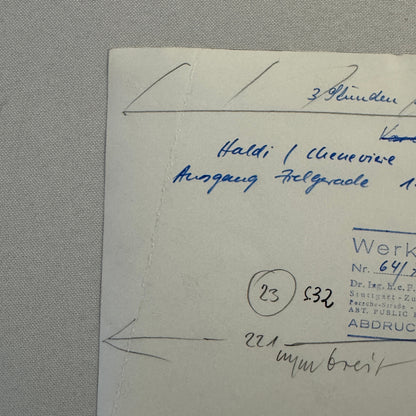 3 Stunden
Haldi / Cheneviere
Ausgang Zielgerade 1
Werk
Nr. 64/
Dr. Ing. h.c. F.
Stuttgart-Zu
Porsche-Straße
ABT. PUBLIC
ABDRUC
23 S.32
221 mm breit